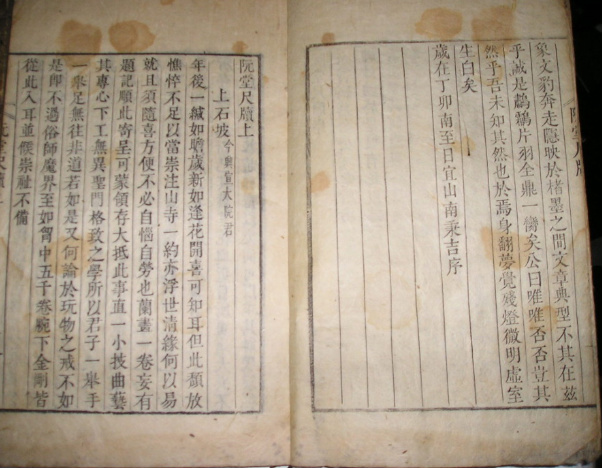 象文豹奔走隱映於楮墨之間文章典型不其在玆
乎誠是片羽全鼎一臠矣公曰唯唯否否豈其
然乎吾未知其然也於焉身翻夢覺殘燈微明虛室
生白矣
歲在丁卯南至日宜山南秉吉序
阮堂尺牘上
上石坡 今興宣大院君
年後一緘如瞻歲新如逢花開喜可知耳但此頹放
憔悴不足以當崇注山寺一約亦浮世清緣何以易
就且須隨喜方便不必自惱自勞也蘭畫一卷妄有
題記順此寄呈可蒙領存大抵此事直一小技曲藝
其專心下工無異聖門格致之學所以君子一擧手
一擧足無往非道若如是又何論於玩物之戒不如
是卽不過俗師魔界至如胷中五千卷腕下金剛皆
從此入耳並候崇祉不備